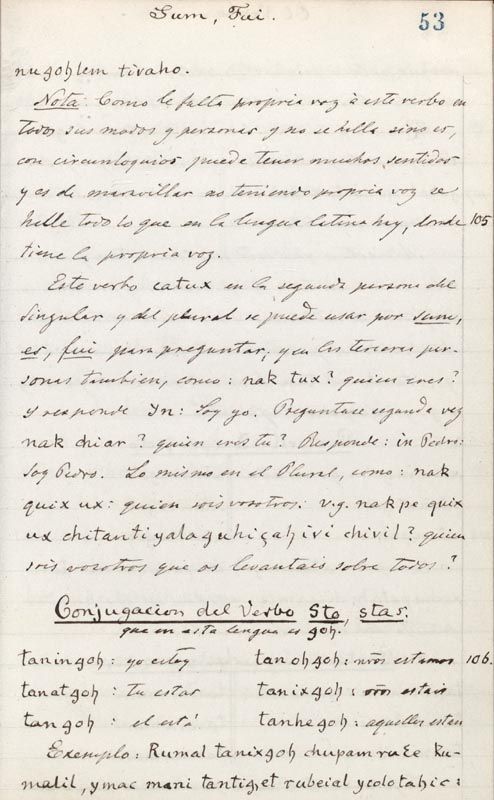 Sum, Fui.
53
nugohlem tivaho.
Nota: Como le falta propria voz à este verbo en
todos sus modos y personas y no se halla sino es,
con circunloquios puede tener muchos sentidos
y es de maravillar no teniendo propria voz se
halle todo lo que en la lengua latina hay, donde 105
tiene la propria voz.
Este verbo catux en la segunda persona del
singular y del plural se puede usar por sum,
es, fui para preguntar, y en las terceras per-
sonas tambien, como: nak tux? quien eres?
y responde Yn: Soy yo. Preguntase segunda vez
nak chiar? quien eres tu? Responde: in Pedro:
Soy Pedro. Lo mismo en el Plural, como: nak
quix ux: quien sois vosotros: v.g. nak pe quix
ux chitantiyalaguhiçahivi chivil? quien
sois vosotros que os levantais sobre todos?
Conjugacion del Verbo Sto, stas.
que en esta lengua es goh.
taningoh: yo estoy tanohgoh: nr̃os estamos 106.
tanatgoh: tu estas tanixgoh: vr̃os estais
tangoh: el està tanhegoh: aquellos estan
Exemplo: Rumal tanixgoh chupam ku-
malil, ymac mani tantiget rubeial ycolotahic: